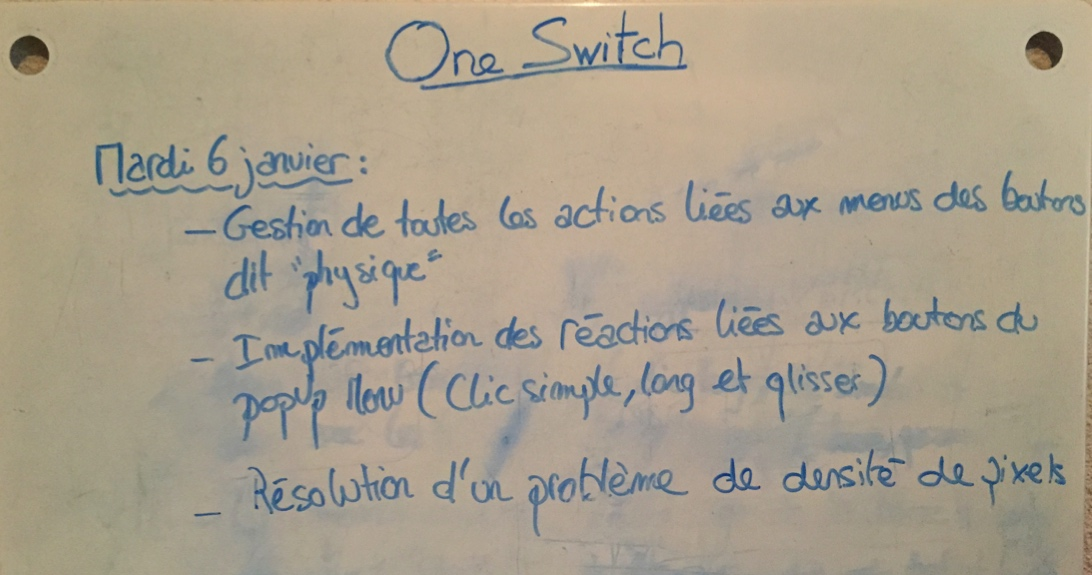 One Switch
Mardi 6 janvier :
– Gestion de toutes les actions liées aux menus des boutons
dit "physique"
– Implémentation des réactions liées aux boutons du
popup Menu (Clic simple, long et glisser)
– Résolution d'un problème de densité de pixels